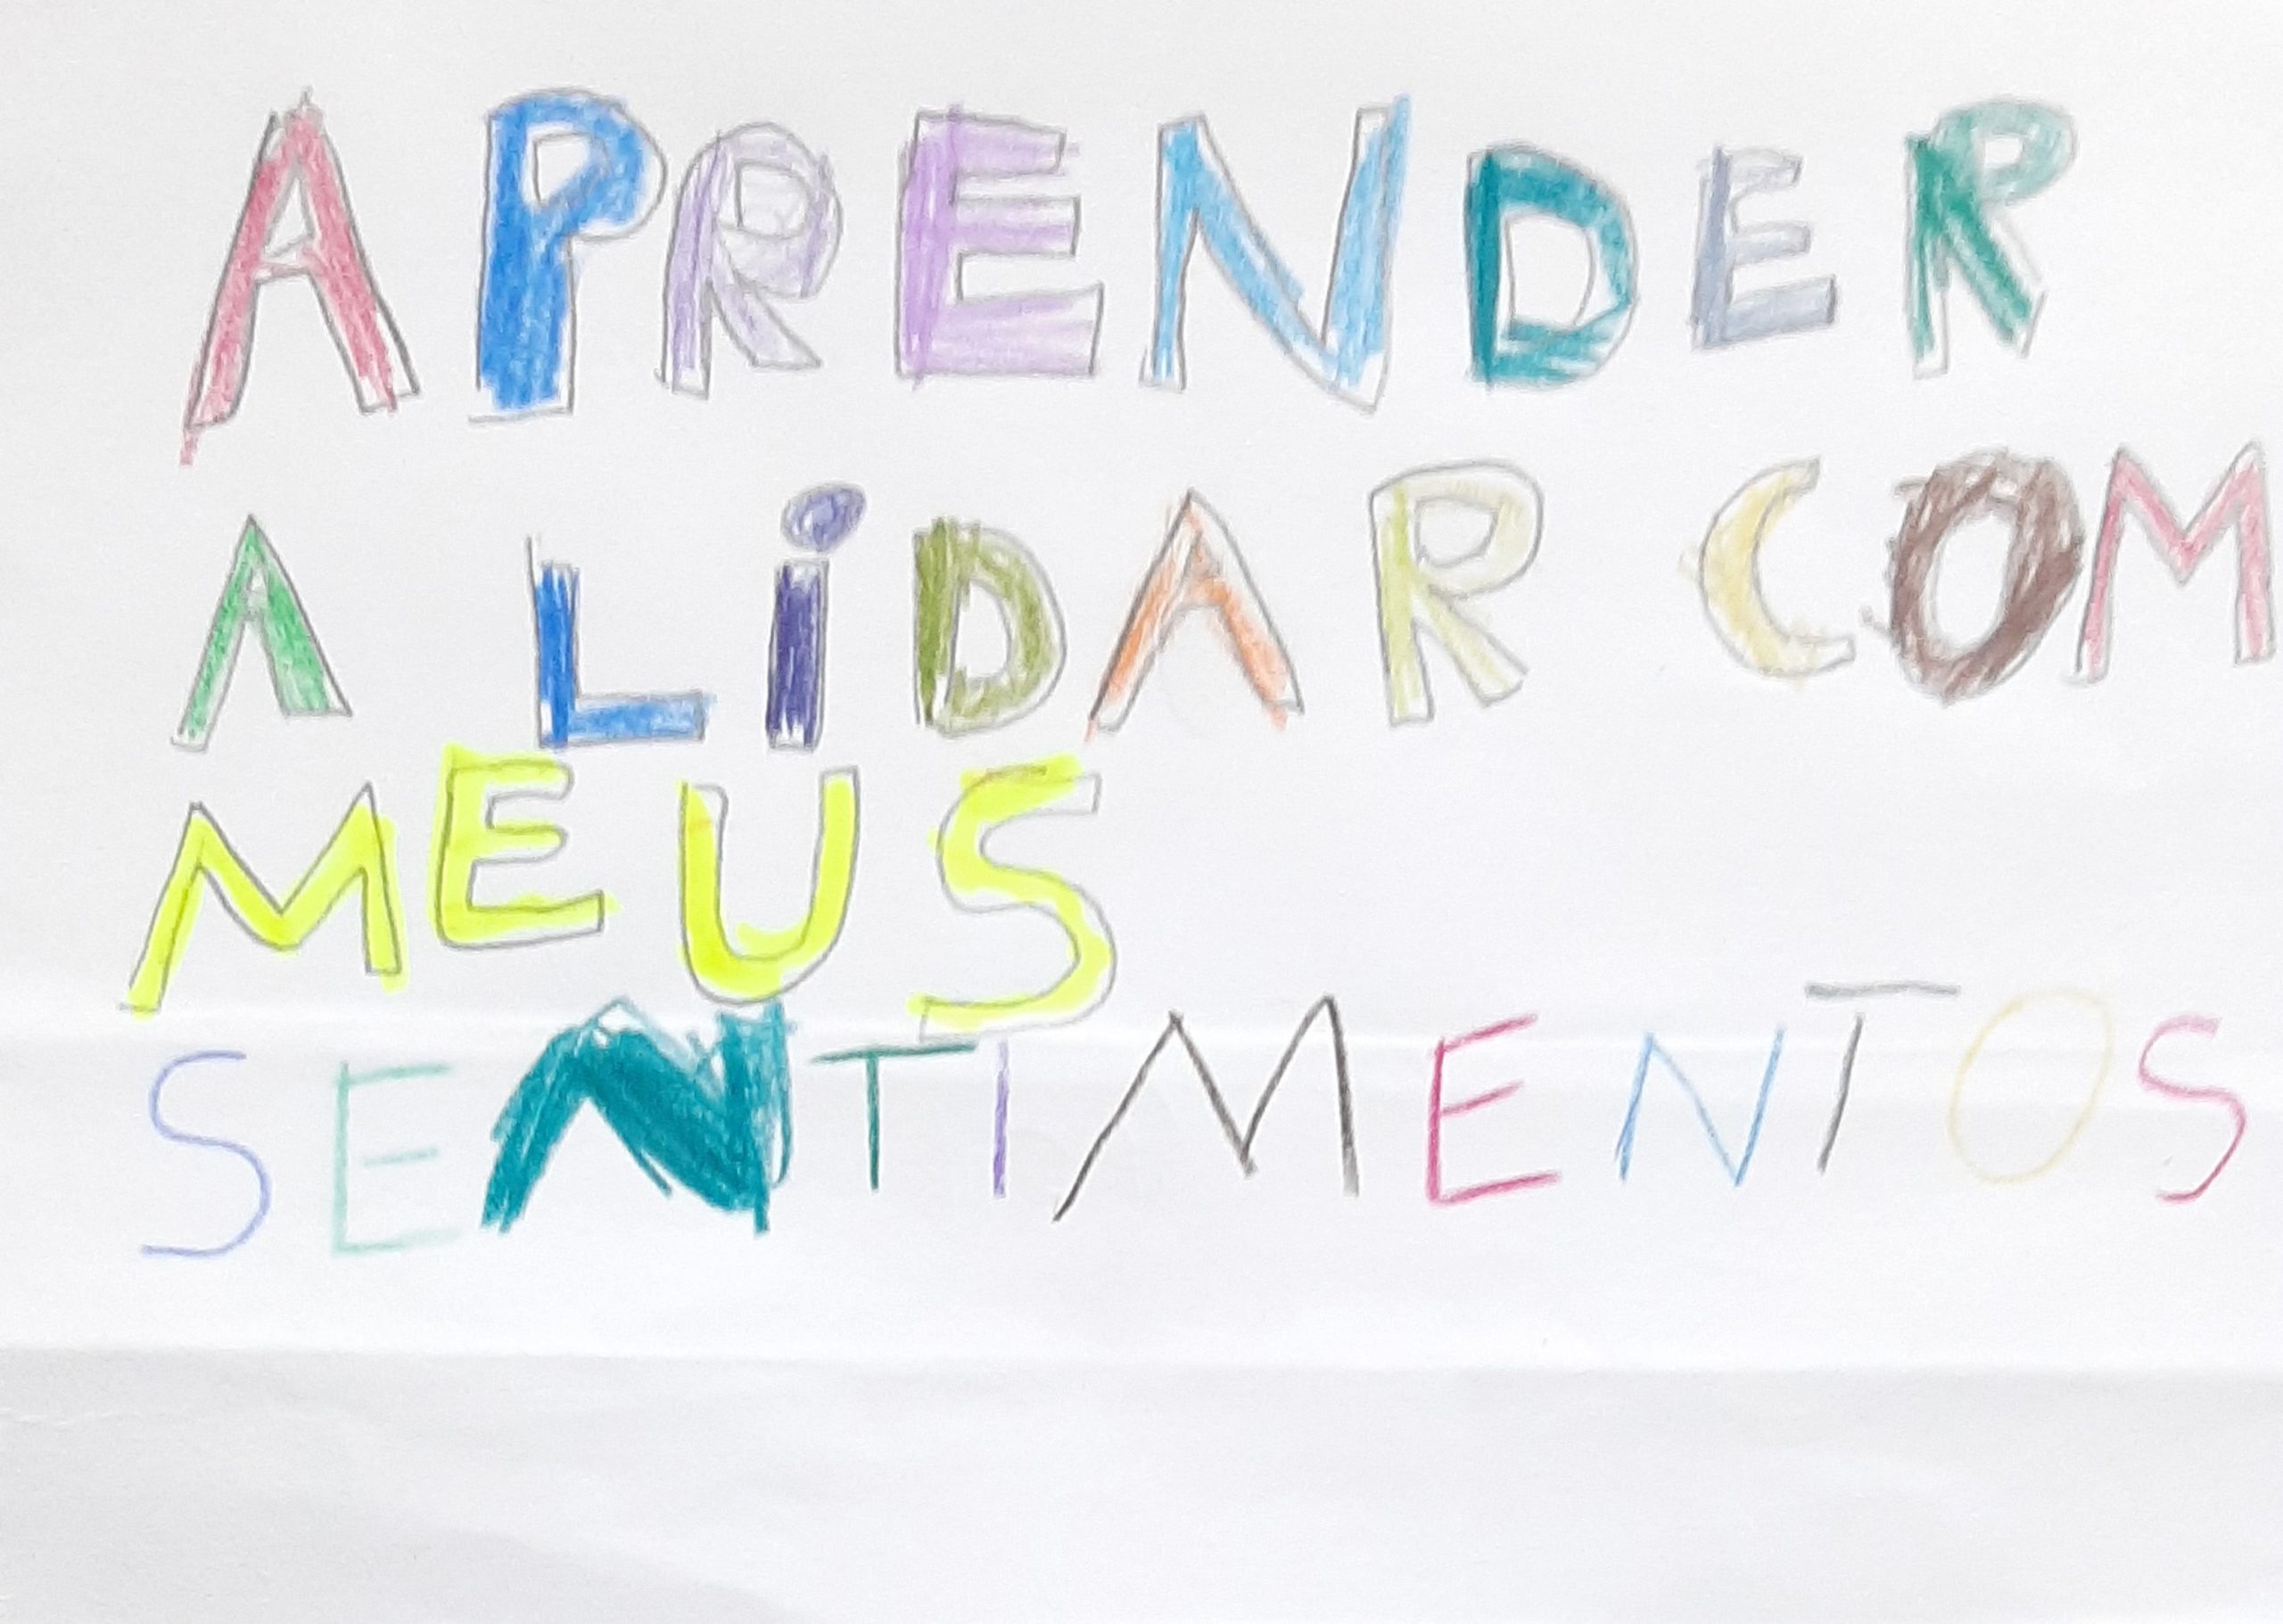 APRENDER
A LiDAR COM
MEUS
SENTIMENTOS